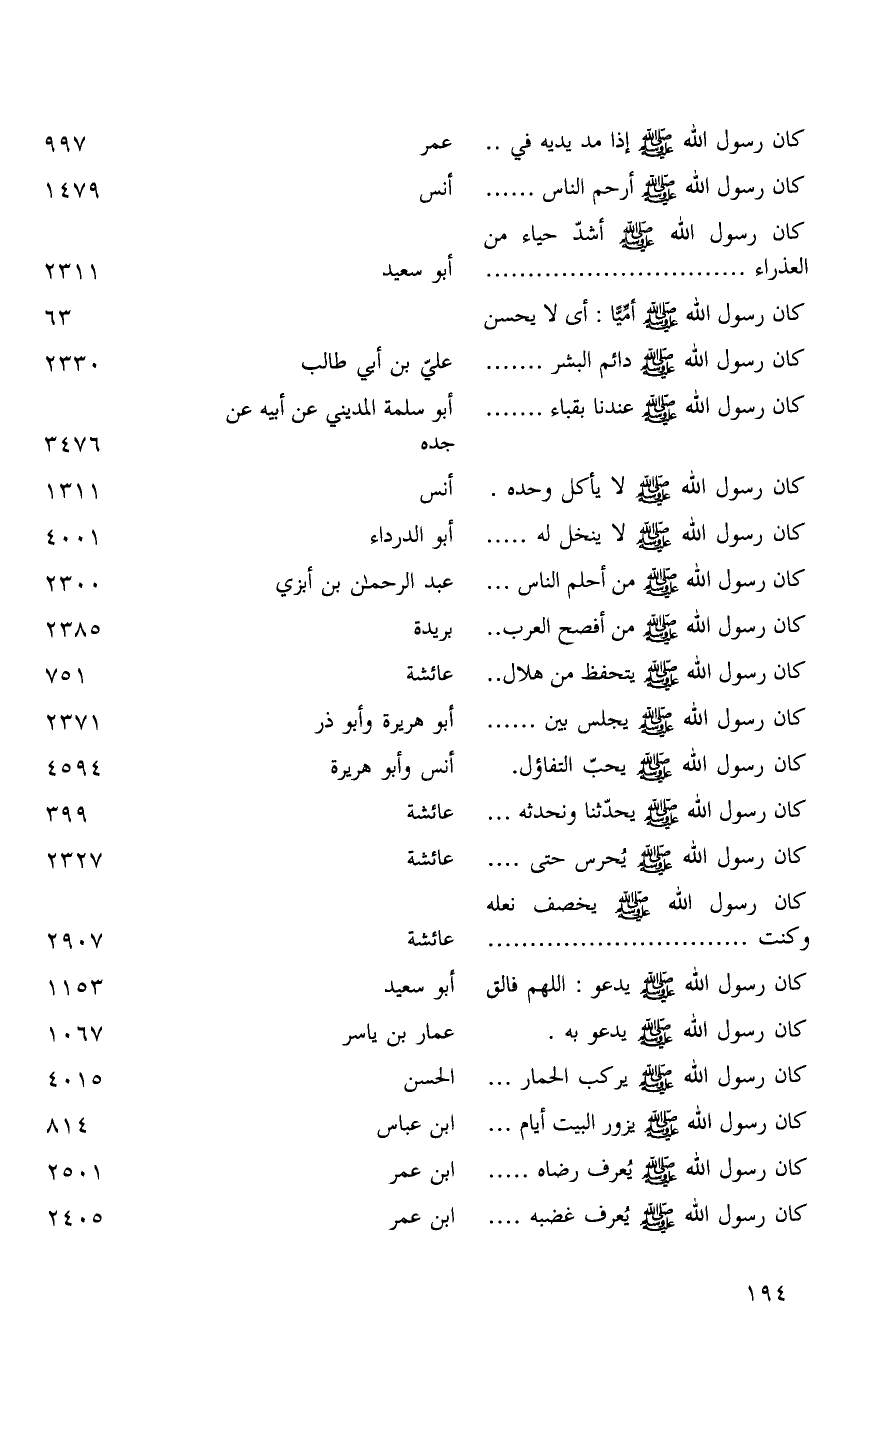 كان رسول الله ﷺ إذا مد يديه في .. عمر ٩٩٧
كان رسول الله ﷺ أرحم الناس ...... أنس ١٤٧٩
كان رسول الله ﷺ أشدّ حياء من
العذراء ............................... أبو سعيد ٢٣١١
كان رسول الله ﷺ أمِّيًّا : أى لا يحسن ٦٣
كان رسول الله ﷺ دائم البشر ....... عليّ بن أبي طالب ٢٣٣٠
كان رسول الله ﷺ عندنا بقباء ....... أبو سلمة المديني عن أبيه عن
جده ٣٤٧٦
كان رسول الله ﷺ لا يأكل وحده . أنس ١٣١١
كان رسول الله ﷺ لا ينخل له ..... أبو الدرداء ٤٠٠١
كان رسول الله ﷺ من أحلم الناس ... عبد الرحمـٰن بن أبزي ٢٣٠٠
كان رسول الله ﷺ من أفصح العرب.. بريدة ٢٣٨٥
كان رسول الله ﷺ يتحفظ من هلال.. عائشة ٧٥١
كان رسول الله ﷺ يجلس بين ...... أبو هريرة وأبو ذر ٢٣٧١
كان رسول الله ﷺ يحبّ التفاؤل. أنس وأبو هريرة ٤٥٩٤
كان رسول الله ﷺ يحدّثنا ونحدثه ... عائشة ٣٩٩
كان رسول الله ﷺ يُحرس حتى .... عائشة ٢٣٢٧
كان رسول الله ﷺ يخصف نعله
وكنت ............................... عائشة ٢٩٠٧
كان رسول الله ﷺ يدعو : اللهم فالق أبو سعيد ١١٥٣
كان رسول الله ﷺ يدعو به . عمار بن ياسر ١٠٦٧
كان رسول الله ﷺ يركب الحمار ... الحسن ٤٠١٥
كان رسول الله ﷺ يزور البيت أيام ... ابن عباس ٨١٤
كان رسول الله ﷺ يُعرف رضاه ..... ابن عمر ٢٥٠١
كان رسول الله ﷺ يُعرف غضبه .... ابن عمر ٢٤٠٥
١٩٤